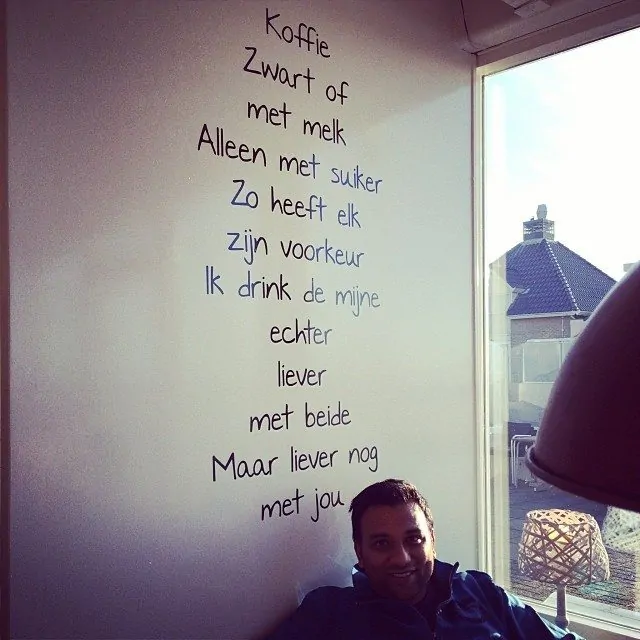 Koffie
Zwart of
met melk
Alleen met suiker
Zo heeft elk
zijn voorkeur
Ik drink de mijne
echter
liever
met beide
Maar liever nog
met jou